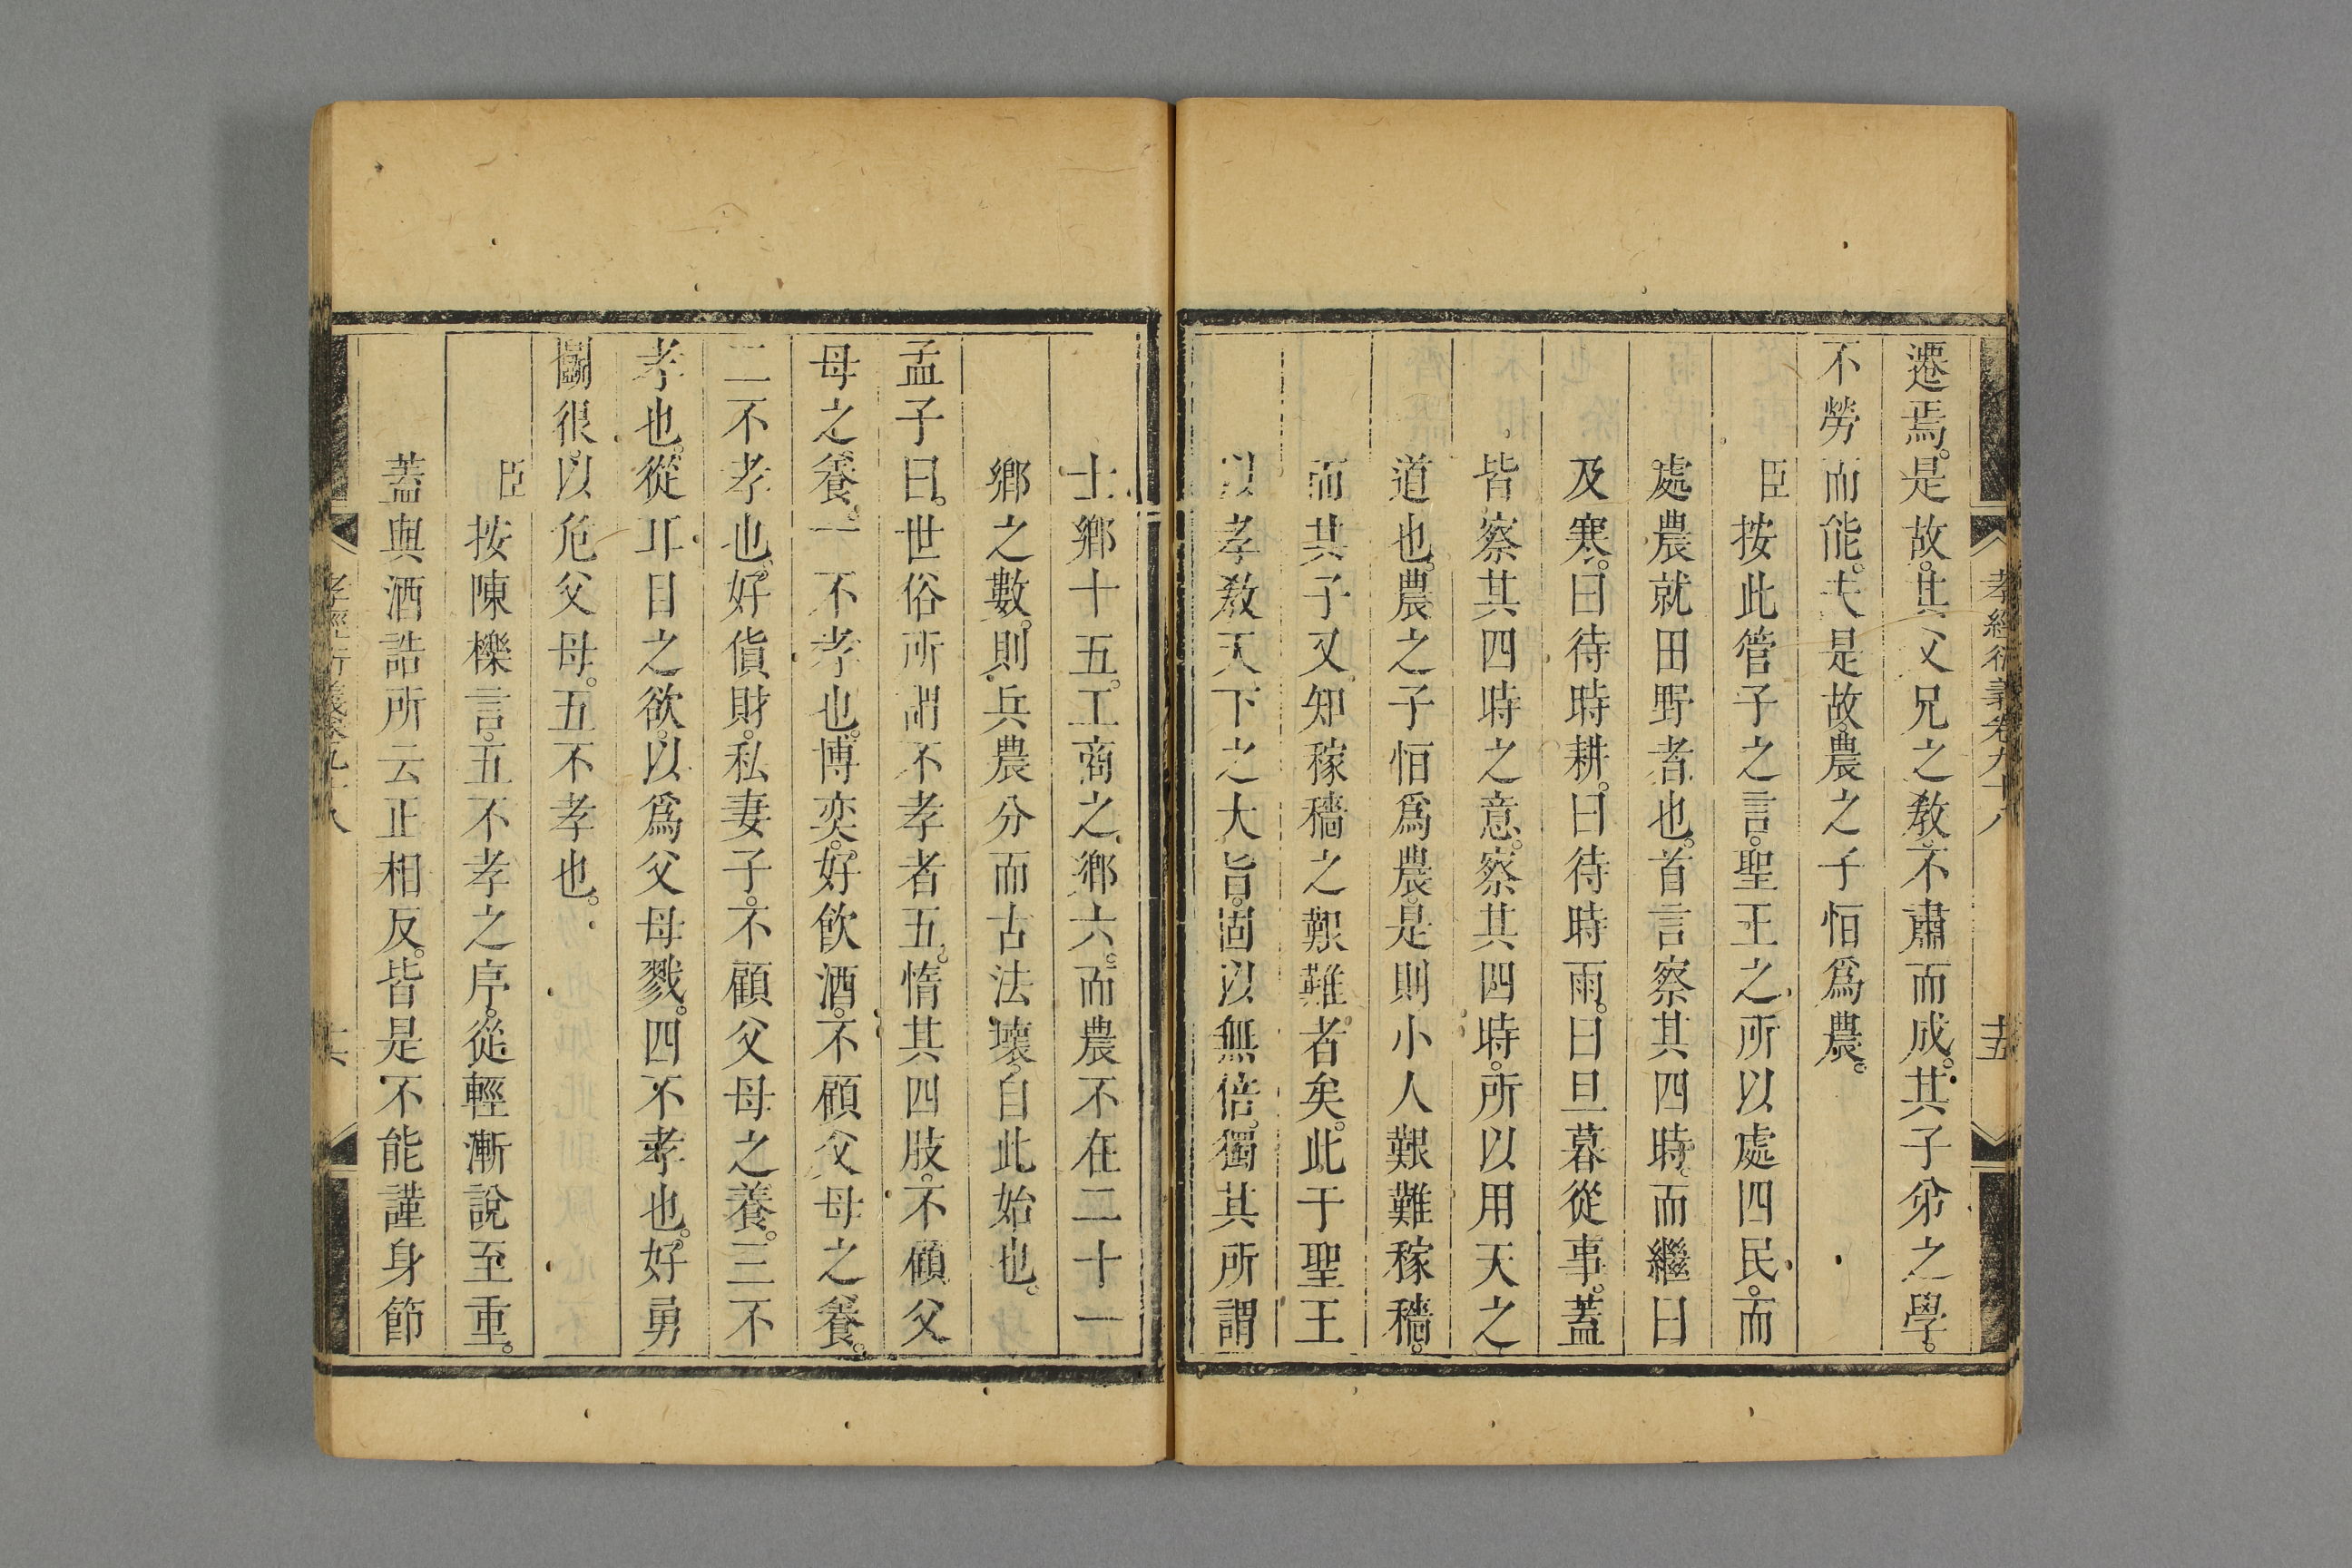 孝經衍義卷九十八 十五
遷焉。是故。其父兄之教。不肅而成。其子弟之學。
不勞而能。夫是故。農之子恒爲農。
臣按此管子之言。聖王之所以處四民。而
處農就田野者也。首言察其四時。而繼曰
及寒。曰待時耕。曰待時雨。曰旦暮從事。蓋
皆察其四時之意。察其四時。所以用天之
道也。農之子恒爲農。是則小人艱難稼穡。
而其子又知稼穡之艱難者矣。此于聖王
以孝教天下之大旨。固以無倍。獨其所謂
士鄉十五。工商之鄉六。而農不在二十一
鄉之數。則兵農分而古法壞。自此始也。
孟子曰。世俗所謂不孝者五。惰其四肢。不顧父
母之養。一不孝也。博奕。好飲酒。不顧父母之養。
二不孝也。好貨財。私妻子。不顧父母之養。三不
孝也。從耳目之欲。以爲父母戮。四不孝也。好勇
鬭很。以危父母。五不孝也。
臣按陳櫟言。五不孝之序。從輕漸說至重。
蓋與酒誥所云正相反。皆是不能謹身節
孝經衍義卷九十八 十六